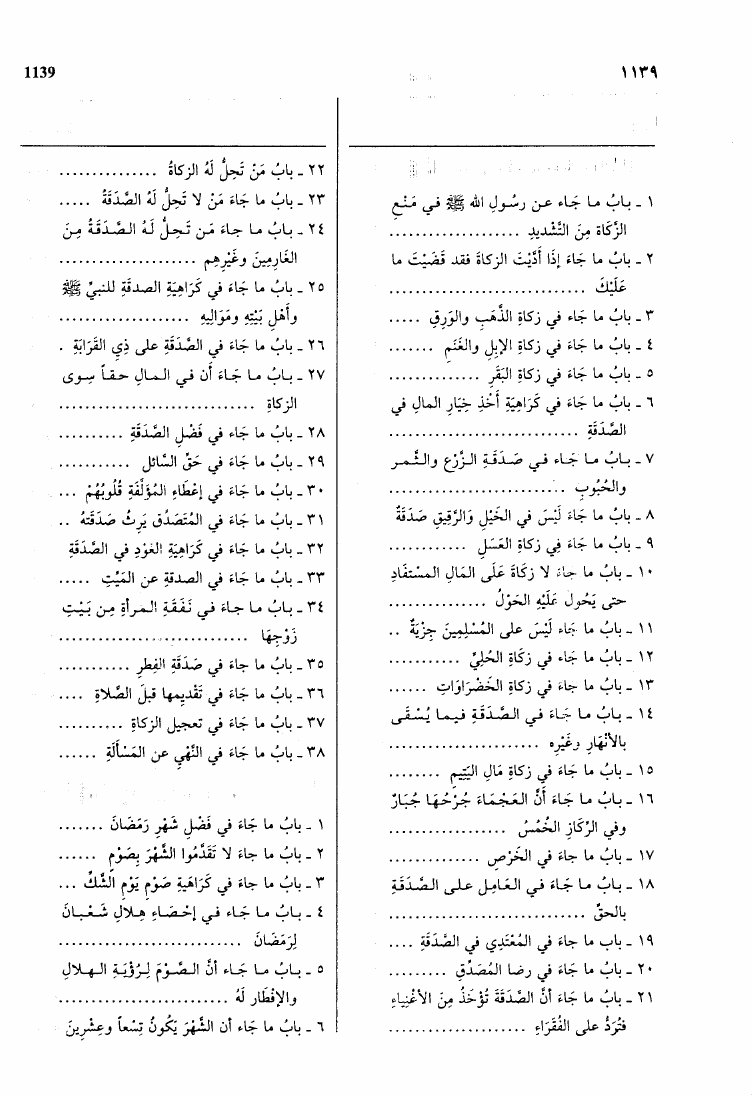 1139
١١٣٩
١ - بابُ ما جَاء عن رسُولِ الله ﷺ في مَنْعِ
الزَّكاة مِنَ التَّشْديدِ ...................
٢ - بابُ ما جَاءَ إذَا أدَّيْتَ الزكاةَ فقد قَضَيْتَ ما
عَلَيْكَ ............................
٣ - بابُ ما جَاء في زكاةِ الذَّهَبِ والوَرِقِ .....
٤ - بابُ ما جَاء في زكاةِ الإبِلِ والغَنَمِ .......
٥ - بابُ ما جَاء في زكاةِ البَقَرِ .............
٦ - بابُ ما جَاءَ في كَرَاهِيَةِ أخْذِ خِيَارِ المالِ في
الصَّدَقَةِ ...........................
٧ - بابُ ما جَاء في صَدَقَةِ الزَّرْعِ والثَّمرِ
والحُبُوبِ ........................
٨ - بابُ ما جَاءَ لَيْسَ في الخَيْلِ وَالرَّقِيقِ صَدَقَةٌ
٩ - بابُ ما جَاءَ فِي زكاةِ العَسَلِ ............
١٠ - بابُ ما جاءَ لا زكاةَ عَلَى المَالِ المسْتفَادِ
حتى يَحُولَ عَلَيْهِ الحَوْلُ ..............
١١ - بابُ ما جَاء لَيْسَ على المُسْلِمِينَ جِزْيَةٌ ..
١٢ - بابُ ما جَاءَ في زكَاةِ الحُلِيِّ ...........
١٣ - بابُ ما جاءَ في زكاةِ الخَضْرَاوَاتِ ......
١٤ - بابُ ما جَاءَ في الصَّدَقَةِ فيما يُسْقَى
بالأنْهَارِ وغَيْرِه ......................
١٥ - بابُ ما جَاءَ في زكاةِ مَالِ اليَتِيمِ ........
١٦ - بابُ ما جَاءَ أنَّ العَجْمَاءَ جُرْحُهَا جُبَارٌ
وفي الرِّكازِ الخُمُسُ .................
١٧ - بابُ ما جاءَ في الخَرْصِ .............
١٨ - بابُ ما جَاءَ في العَامِلِ على الصَّدَقَةِ
بالحقِّ ............................
١٩ - باب ما جاءَ في المُعْتَدِي في الصَّدَقَةِ ....
٢٠ - بابُ ما جَاءَ في رضا المُصَدِّقِ .........
٢١ - بابُ ما جَاءَ أنَّ الصَّدَقَةَ تُؤْخَذُ مِنَ الأغْنِيَاءِ
فتُرَدُّ على الفُقَرَاءِ ....................
٢٢ - بابُ مَنْ تَحِلُّ لَهُ الزكاةُ ...............
٢٣ - بابُ ما جَاءَ مَنْ لا تَحِلُّ لَهُ الصَّدَقَةُ .....
٢٤ - بابُ ما جاءَ مَن تَحِلُّ لَهُ الصَّدَقَةُ مِنَ
الغَارِمِينَ وغَيْرِهِم ....................
٢٥ - بابُ ما جَاءَ في كَرَاهِيَةِ الصدقَةِ للنبيِّ ﷺ
وأهْلِ بَيْتِهِ ومَوَالِيهِ ...................
٢٦ - بابُ ما جَاءَ في الصَّدَقَةِ على ذِي القَرَابَةِ .
٢٧ - بابُ ما جَاءَ أن في المالِ حقاً سِوى
الزكاةِ ............................
٢٨ - بابُ ما جَاء في فَضْلِ الصَّدَقَةِ ..........
٢٩ - بابُ ما جَاءَ في حَقِّ السَّائل ...........
٣٠ - بابُ ما جَاءَ في إعْطَاءِ المُؤَلَّفَةِ قُلُوبُهُمْ ...
٣١ - بابُ ما جَاءَ في المُتَصَدِّقِ يَرِثُ صَدَقتَهُ ..
٣٢ - بابُ ما جَاءَ في كَرَاهِيَةِ العَوْدِ في الصَّدَقَةِ
٣٣ - بابُ ما جَاءَ في الصدقةِ عن المَيِّتِ .....
٣٤ - بابُ ما جاءَ في نَفَقَةِ المرأةِ مِن بَيْتِ
زَوْجِهَا ...........................
٣٥ - بابُ ما جاءَ في صَدَقَةِ الفِطرِ ...........
٣٦ - بابُ ما جَاءَ في تَقْدِيمِها قبلَ الصَّلاةِ ....
٣٧ - بابُ ما جَاءَ في تعجيل الزكاةِ ..........
٣٨ - بابُ ما جَاءَ في النَّهْيِ عن المَسْألَةِ ......
١ - بابُ ما جَاءَ في فَضْلِ شَهْرِ رَمَضَانَ .......
٢ - بابُ ما جاءَ لا تَقَدَّمُوا الشَّهْرَ بِصَوْمٍ ......
٣ - بابُ ما جاءَ في كَرَاهَيةِ صَوْمِ يَوْمِ الشَّكِّ ...
٤ - بابُ ما جَاء في إحْصَاءِ هِلالِ شَعْبانَ
لِرَمَضَانَ ..........................
٥ - بابُ ما جَاء أنَّ الصَّوْمَ لِرُؤْيَةِ الهلالِ
والإفْطَار لَهُ ........................
٦ - بابُ ما جَاء أن الشَّهْرَ يَكُونُ تِسْعاً وعِشْرِينَ